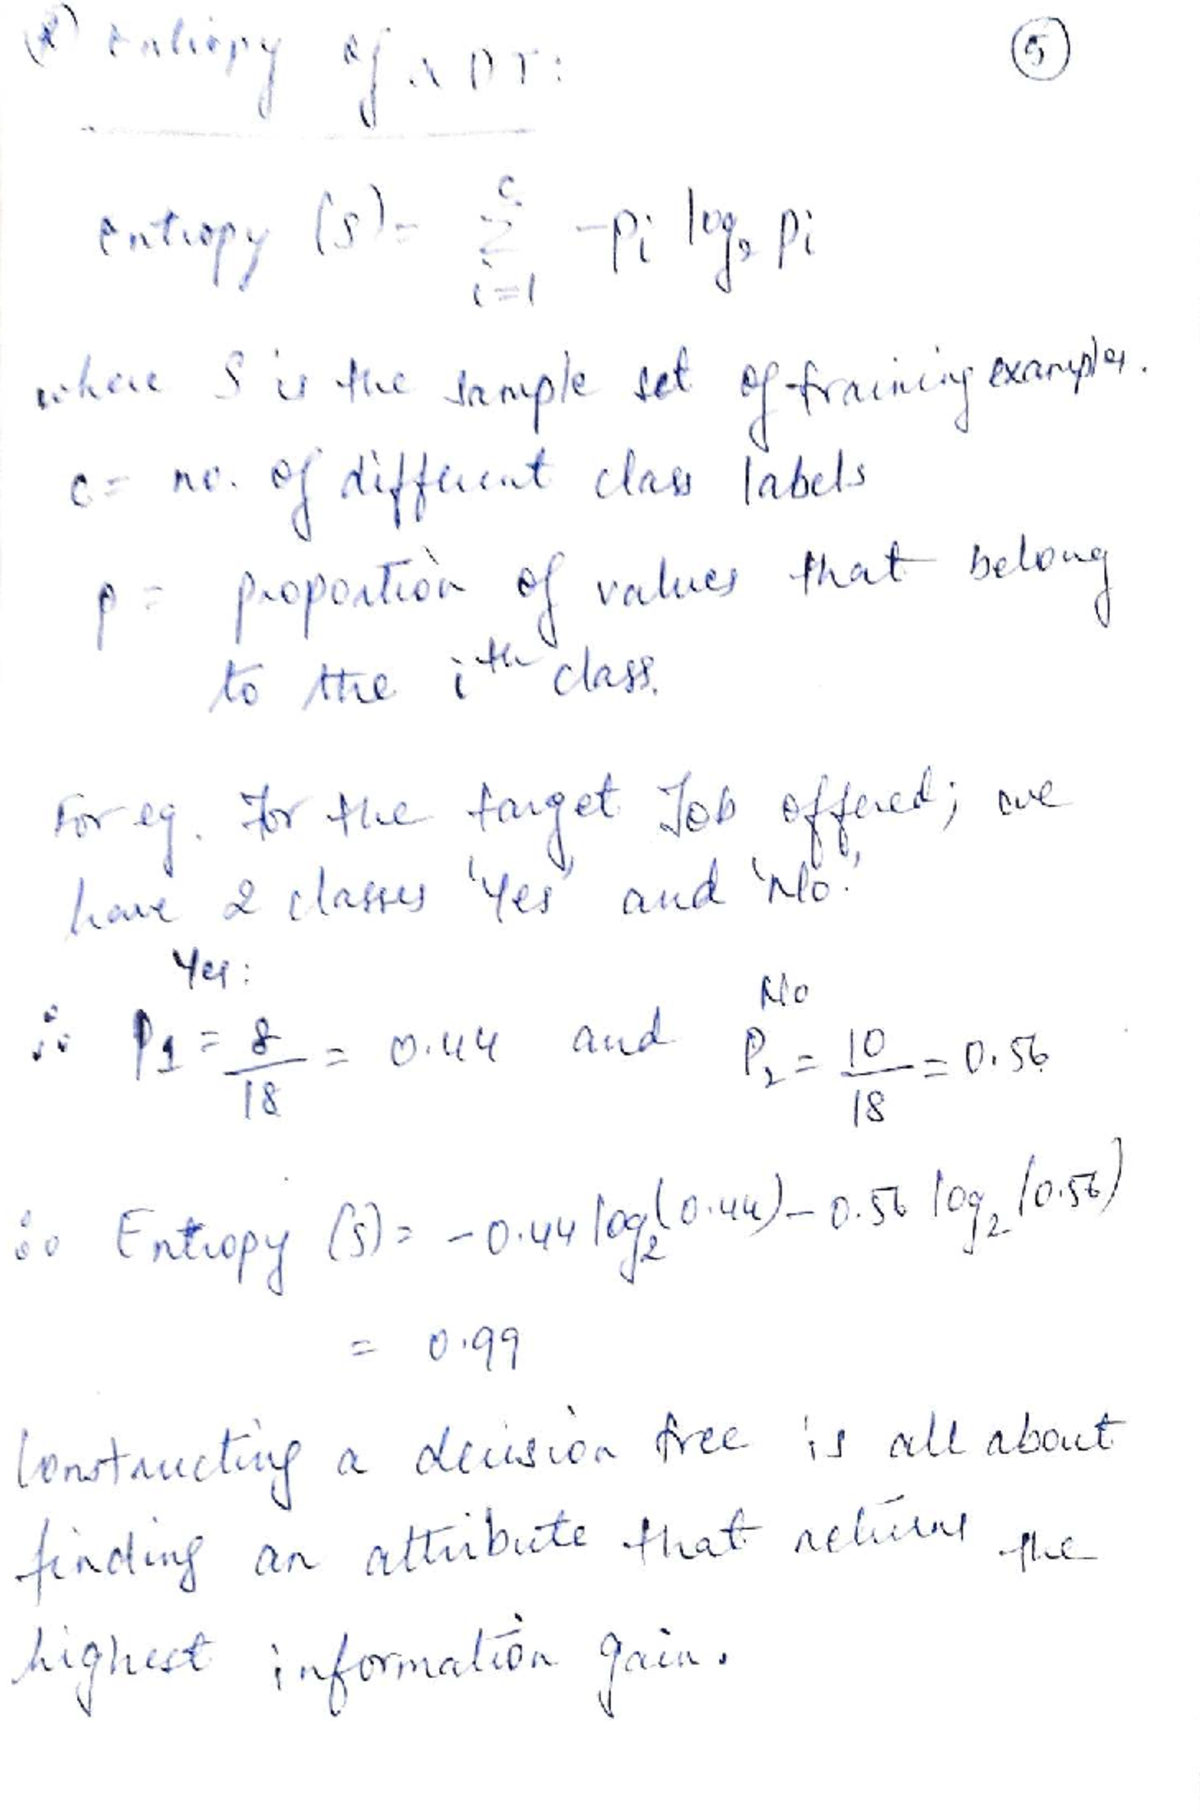 (*) Entropy of a DT:
5
entropy (S) = c Σ i=1 -pi log2 pi
where S is the sample set of training examples.
c = no. of different class labels
p = proportion of values that belong
to the ith class.
For eg. For the target Job offered; we
have 2 classes 'Yes' and 'No.'
Yes:
No
∴ P1 = 8/18 = 0.44 and P2 = 10/18 = 0.56
∴ Entropy (S) = -0.44 log2(0.44) - 0.56 log2(0.56)
= 0.99
Constructing a decision tree is all about
finding an attribute that returns the
highest information gain.